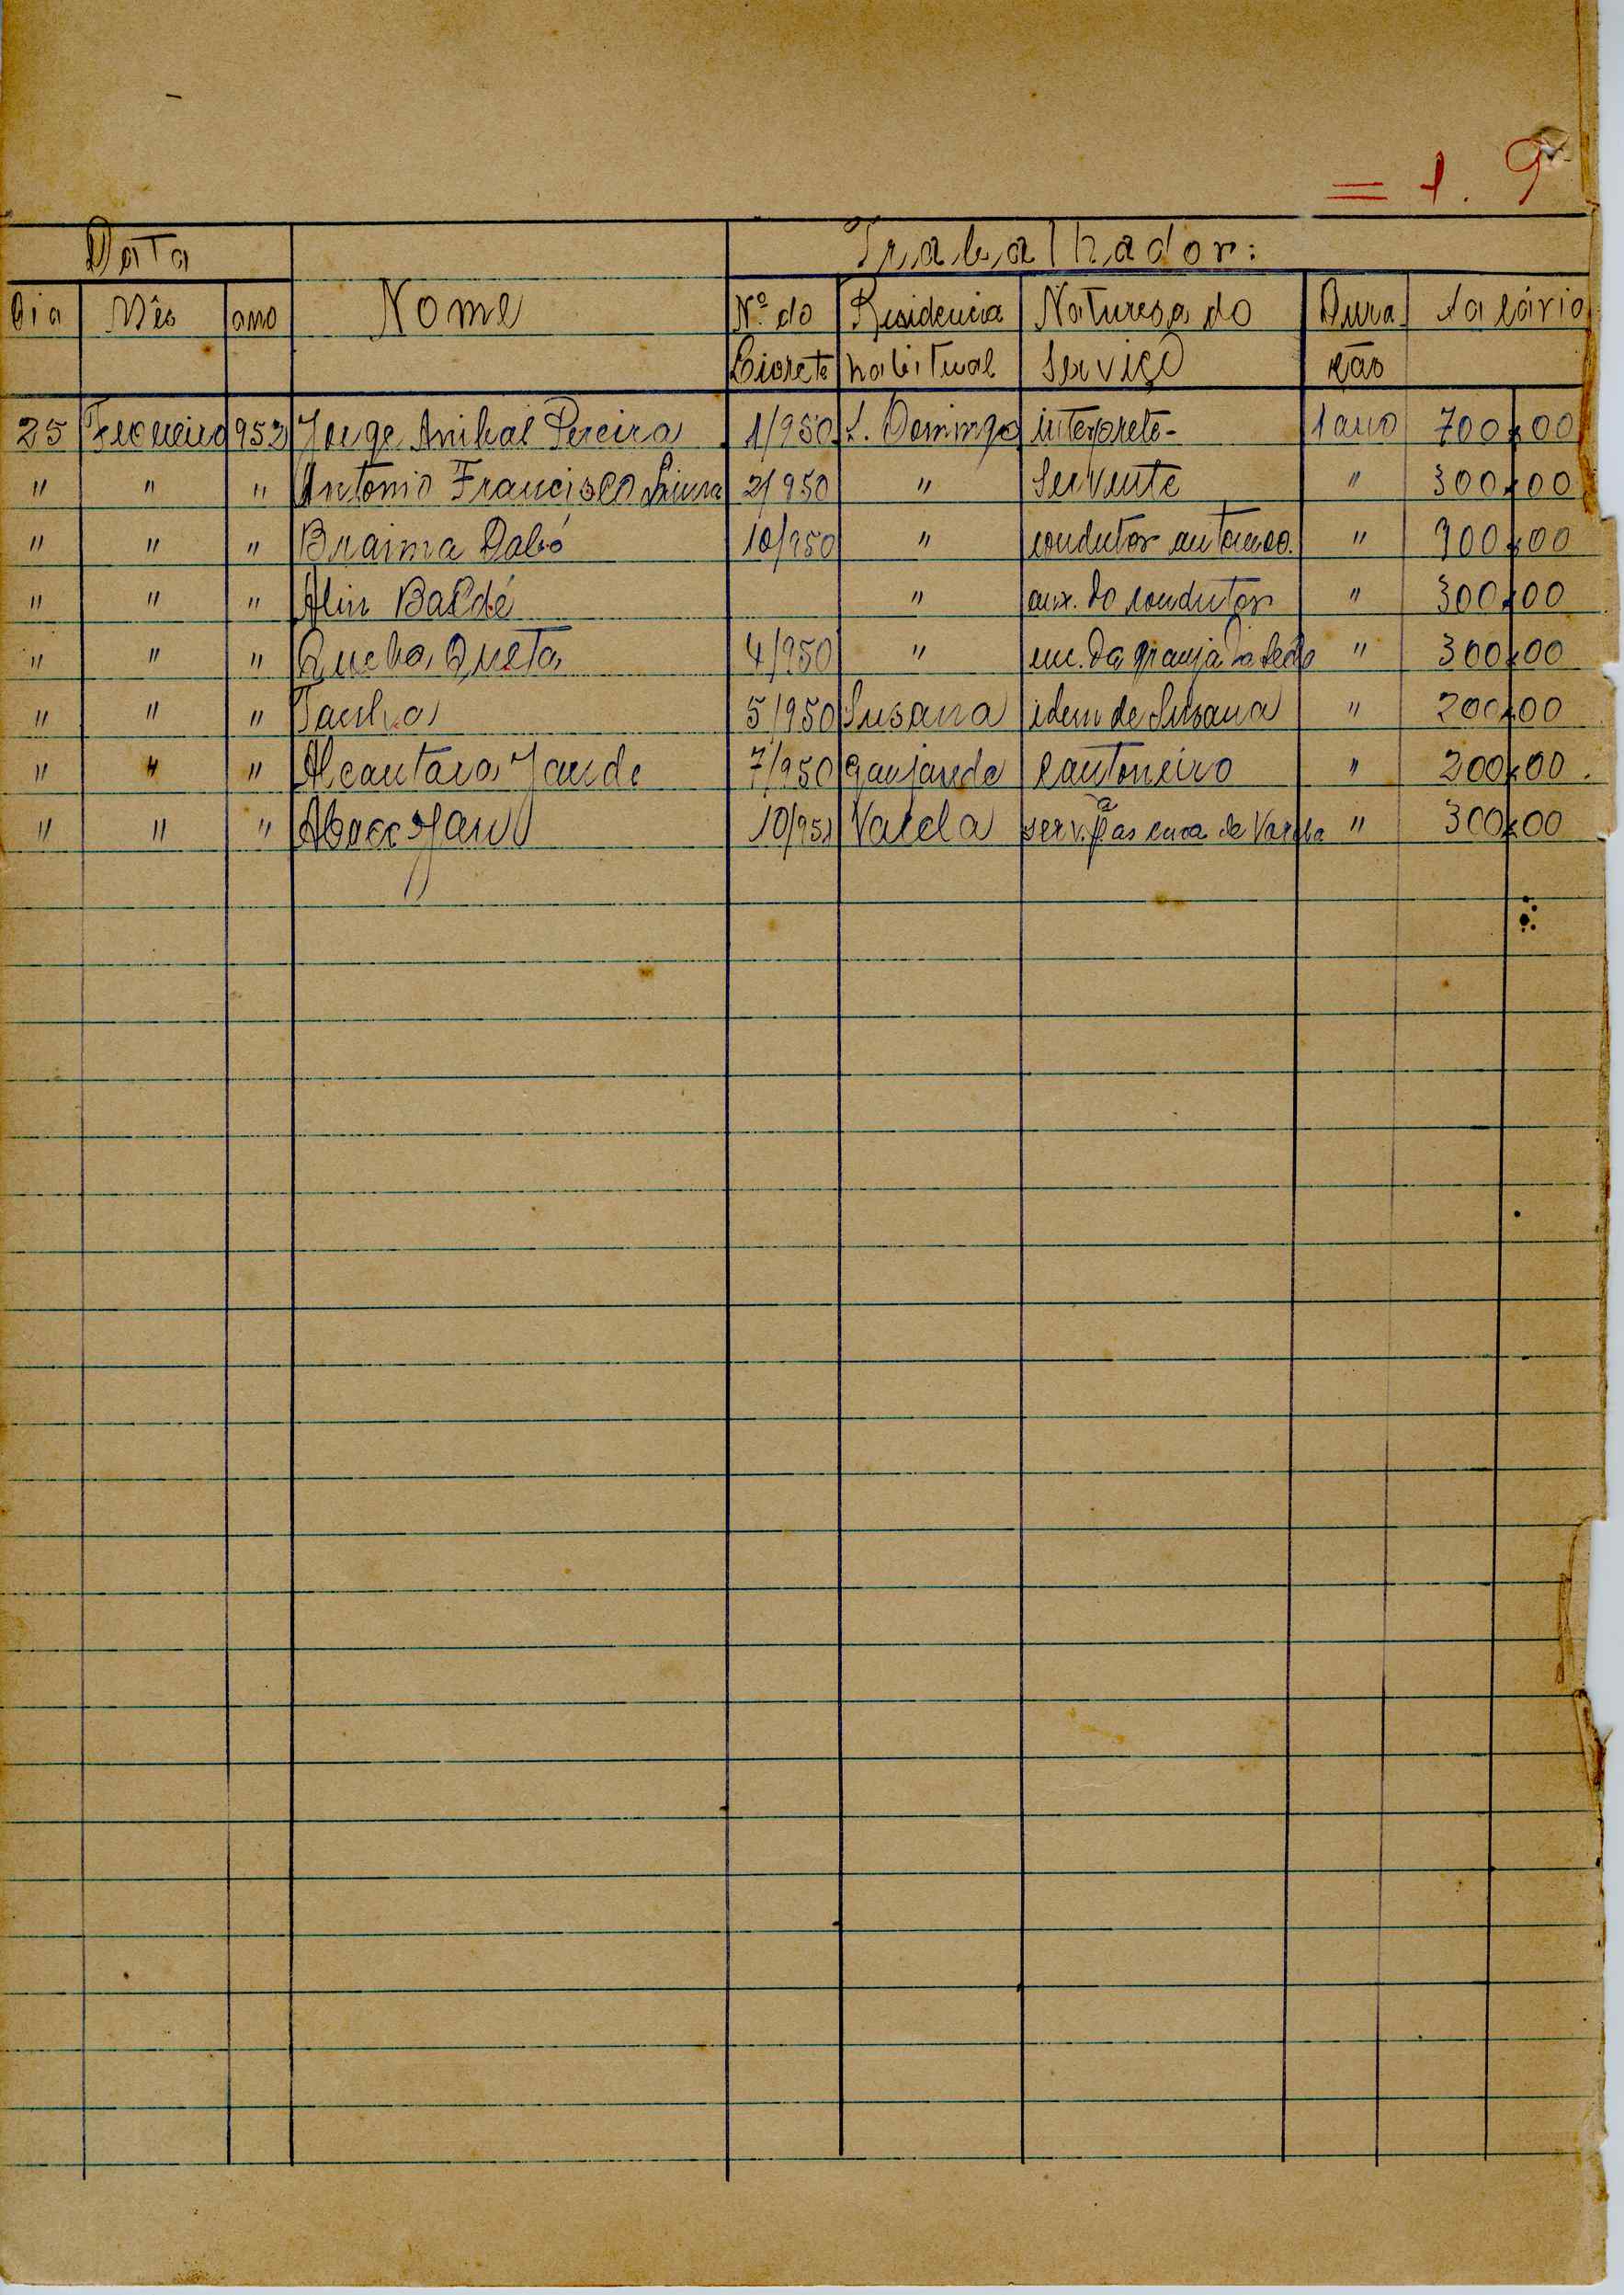 = 1. 9
Data Trabalhador:
Dia Mês ano Nome Nº do Residencia Naturesa do Dura Salário
Biorete habitual Serviço ção
25 Fevereiro 952 Jorge Anibal Pereira 1/950 S. Domingo interprete- 1 ano 700$00
" " " Antonio Francisco 2/950 " Servente " 300$00
" " " Braima Dabó 10/950 " condutor " 900$00
" " " Aliu Baldé " aux. do condutor " 300$00
" " " Queba Queta 4/950 " enc. da granja da Sede " 300$00
" " " 5/950 Susana idem de Susana " 200$00
" " " Alcantara Jande 7/950 cantoneiro " 200$00
" " " 10/951 Varela serv. de Varela " 300$00